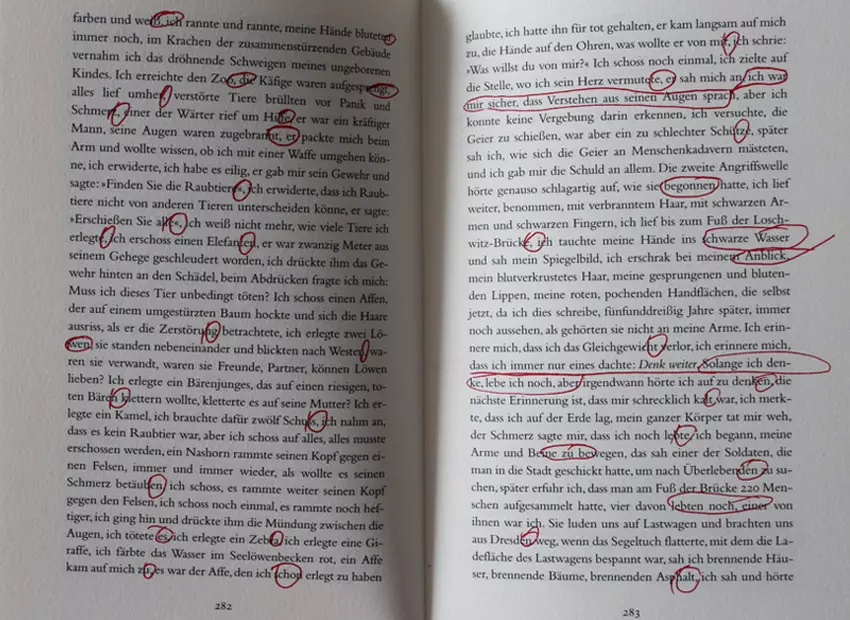 farben und weiß, ich rannte und rannte, meine Hände bluteten
immer noch, im Krachen der zusammenstürzenden Gebäude
vernahm ich das dröhnende Schweigen meines ungeborenen
Kindes. Ich erreichte den Zoo, die Käfige waren aufgesprengt,
alles lief umher, verstörte Tiere brüllten vor Panik und
Schmerz, einer der Wärter rief um Hilfe, er war ein kräftiger
Mann, seine Augen waren zugebrannt, er packte mich beim
Arm und wollte wissen, ob ich mit einer Waffe umgehen kön-
ne, ich erwiderte, ich habe es eilig, er gab mir sein Gewehr und
sagte: »Finden Sie die Raubtiere«, ich erwiderte, dass ich Raub-
tiere nicht von anderen Tieren unterscheiden könne, er sagte:
»Erschießen Sie alle«, ich weiß nicht mehr, wie viele Tiere ich
erlegte, ich erschoss einen Elefanten, er war zwanzig Meter aus
seinem Gehege geschleudert worden, ich drückte ihm das Ge-
wehr hinten an den Schädel, beim Abdrücken fragte ich mich:
Muss ich dieses Tier unbedingt töten? Ich schoss einen Affen,
der auf einem umgestürzten Baum hockte und sich die Haare
ausriss, als er die Zerstörung betrachtete, ich erlegte zwei Lö-
wen, sie standen nebeneinander und blickten nach Westen, wa-
ren sie verwandt, waren sie Freunde, Partner, können Löwen
lieben? Ich erlegte ein Bärenjunges, das auf einen riesigen, to-
ten Bären klettern wollte, kletterte es auf seine Mutter? Ich er-
legte ein Kamel, ich brauchte dafür zwölf Schuss, ich nahm an,
dass es kein Raubtier war, aber ich schoss auf alles, alles musste
erschossen werden, ein Nashorn rammte seinen Kopf gegen ei-
nen Felsen, immer und immer wieder, als wollte es seinen
Schmerz betäuben, ich schoss, es rammte weiter seinen Kopf
gegen den Felsen, ich schoss noch einmal, es rammte noch hef-
tiger, ich ging hin und drückte ihm die Mündung zwischen die
Augen, ich tötete es, ich erlegte ein Zebra, ich erlegte eine Gi-
raffe, ich färbte das Wasser im Seelöwenbecken rot, ein Affe
kam auf mich zu, es war der Affe, den ich schon erlegt zu haben
282
glaubte, ich hatte ihn für tot gehalten, er kam langsam auf mich
zu, die Hände auf den Ohren, was wollte er von mir, ich schrie:
»Was willst du von mir?« Ich schoss noch einmal, ich zielte auf
die Stelle, wo ich sein Herz vermutete, er sah mich an, ich war
mir sicher, dass Verstehen aus seinen Augen sprach, aber ich
konnte keine Vergebung darin erkennen, ich versuchte, die
Geier zu schießen, war aber ein zu schlechter Schütze, später
sah ich, wie sich die Geier an Menschenkadavern mästeten,
und ich gab mir die Schuld an allem. Die zweite Angriffswelle
hörte genauso schlagartig auf, wie sie begonnen hatte, ich lief
weiter, benommen, mit verbranntem Haar, mit schwarzen Ar-
men und schwarzen Fingern, ich lief bis zum Fuß der Losch-
witz-Brücke, ich tauchte meine Hände ins schwarze Wasser
und sah mein Spiegelbild, ich erschrak bei meinem Anblick,
mein blutverkrustetes Haar, meine gesprungenen und bluten-
den Lippen, meine roten, pochenden Handflächen, die selbst
jetzt, da ich dies schreibe, fünfunddreißig Jahre später, immer
noch aussehen, als gehörten sie nicht an meine Arme. Ich erin-
nere mich, dass ich das Gleichgewicht verlor, ich erinnere mich,
dass ich immer nur eines dachte: Denk weiter. Solange ich den-
ke, lebe ich noch, aber irgendwann hörte ich auf zu denken, die
nächste Erinnerung ist, dass mir schrecklich kalt war, ich merk-
te, dass ich auf der Erde lag, mein ganzer Körper tat mir weh,
der Schmerz sagte mir, dass ich noch lebte, ich begann, meine
Arme und Beine zu bewegen, das sah einer der Soldaten, die
man in die Stadt geschickt hatte, um nach Überlebenden zu su-
chen, später erfuhr ich, dass man am Fuß der Brücke 220 Men-
schen aufgesammelt hatte, vier davon lebten noch, einer von
ihnen war ich. Sie luden uns auf Lastwagen und brachten uns
aus Dresden weg, wenn das Segeltuch flatterte, mit dem die La-
defläche des Lastwagens bespannt war, sah ich brennende Häu-
ser, brennende Bäume, brennenden Asphalt, ich sah und hörte
283